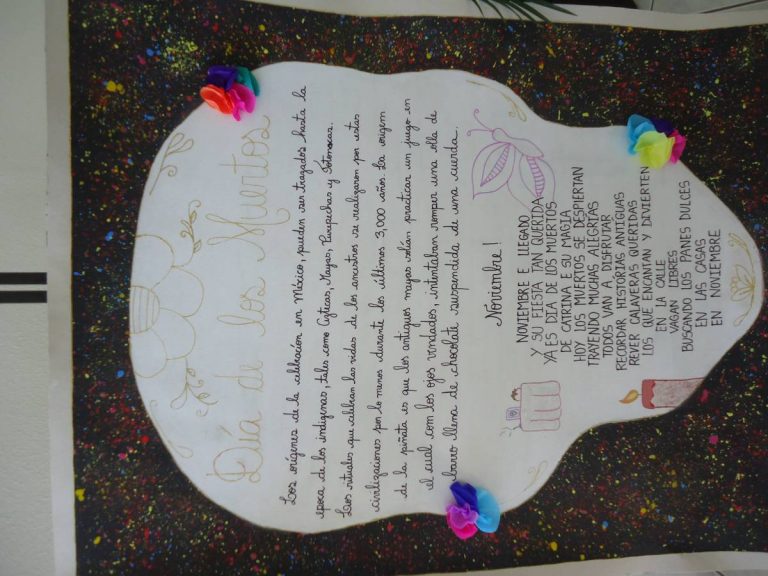 Día de los Muertos
Los orígenes de la celebración en México, pueden ser tragados hasta la
época de los indígenas, tales como Azticas, Mayas, Purepechas y Totonacas.
Los rituales que celebran las vidas de los ancestros se realizaron por estas
civilizaciones por lo menos durante los últimos 3,000 años. La origem
de la piñata es que los antiguos mayas solían practicar un juego en
el cual com los ojos vendados, intentaban romper una olla de
barro llena de chocolate suspendida de una cuerda.
Noviembre!
NOVIEMBRE E LLEGADO
Y SU FIESTA TAN QUERIDA
YA ES DIA DE LOS MUERTOS
DE CATRINA E SU MAGIA
HOY LOS MUERTOS SE DESPIERTAN
TRAYENDO MUCHAS ALEGRÍAS
TODOS VAN A DISFRUTAR
RECORDAR HISTORIAS ANTIGUAS
REVER CALAVERAS QUERIDAS
LOS QUE ENCANTAN Y DIVIERTEN
EN LA CALLE
VAGAN LIBRES
BUSCANDO LOS PANES DULCES
EN LAS CASAS
EN NOVIEMBRE